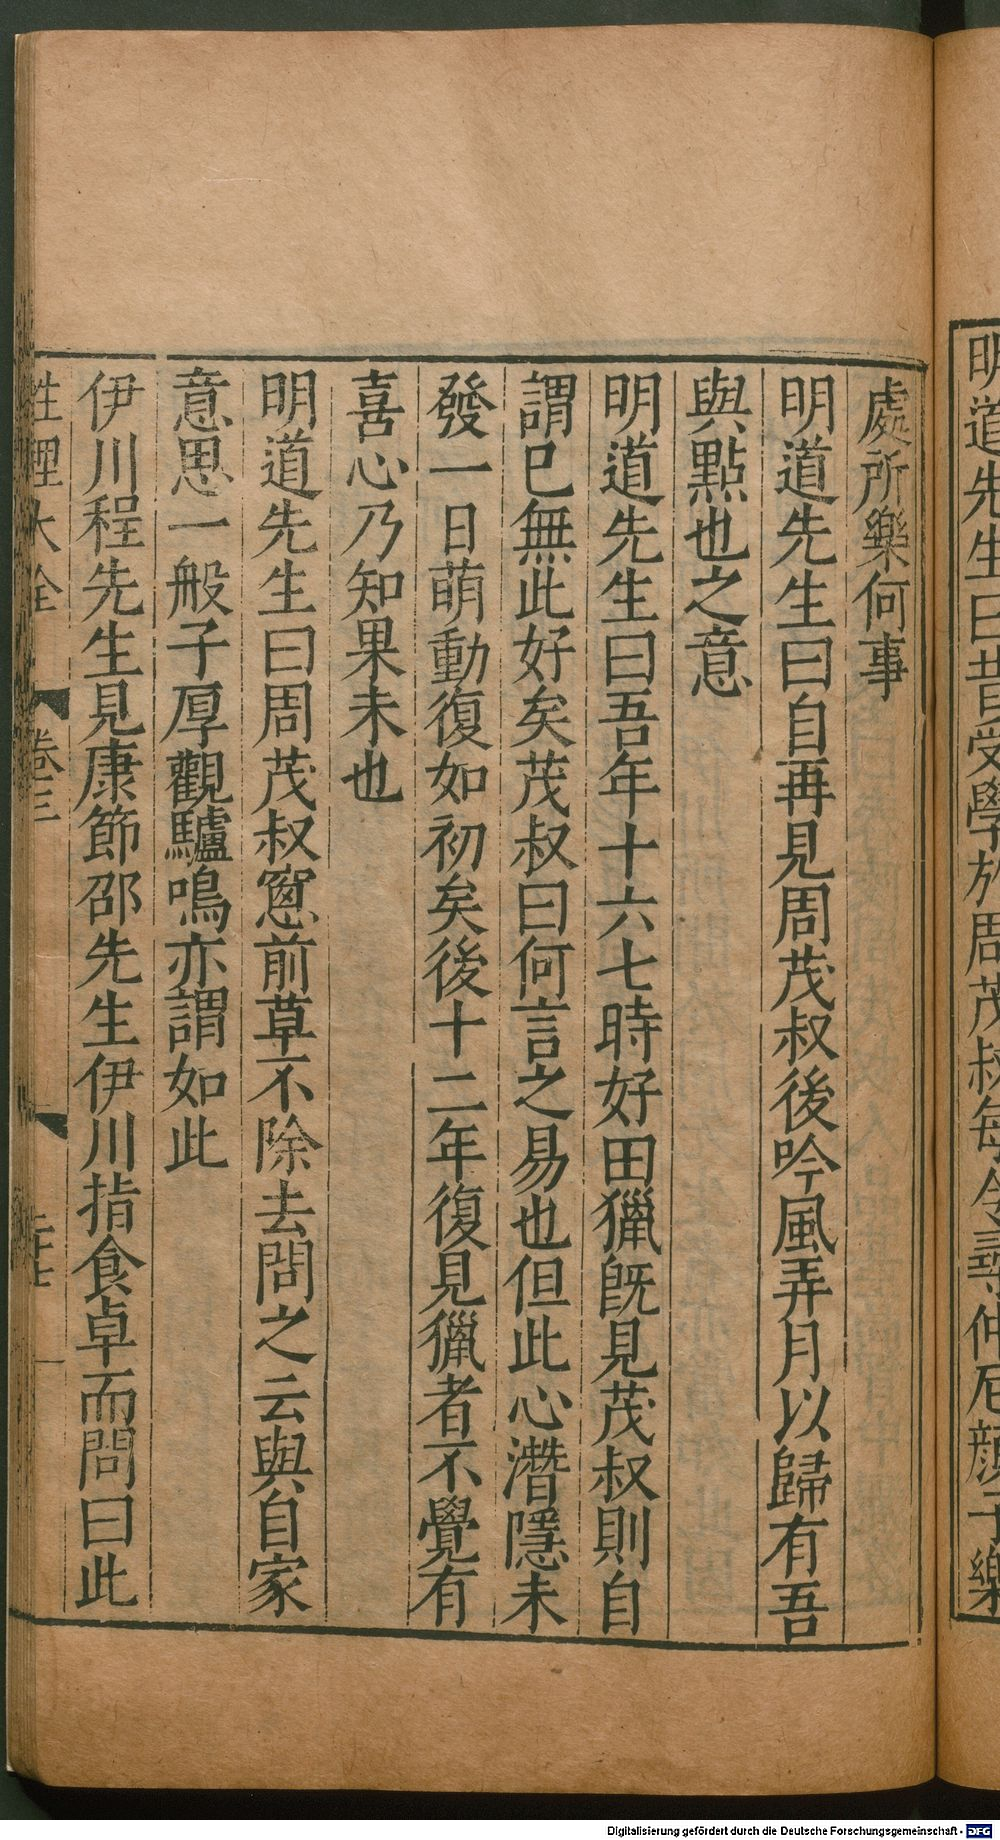 明道先生曰昔受學於周茂叔每令尋仲尼顔子樂
處所樂何事
明道先生曰自再見周茂叔後吟風弄月以歸有吾
與點也之意
明道先生曰吾年十六七時好田獵旣見茂叔則自
謂已無此好矣茂叔曰何言之易也但此心潛隱未
發一日萌動復如初矣後十二年復見獵者不覺有
喜心乃知果未也
明道先生曰周茂叔窻前草不除去問之云與自家
意思一般子厚觀驢鳴亦謂如此
伊川程先生見康節邵先生伊川指食卓而問曰此
性理大全 卷三
Digitalisierung gefördert durch die Deutsche Forschungsgemeinschaft - DFG